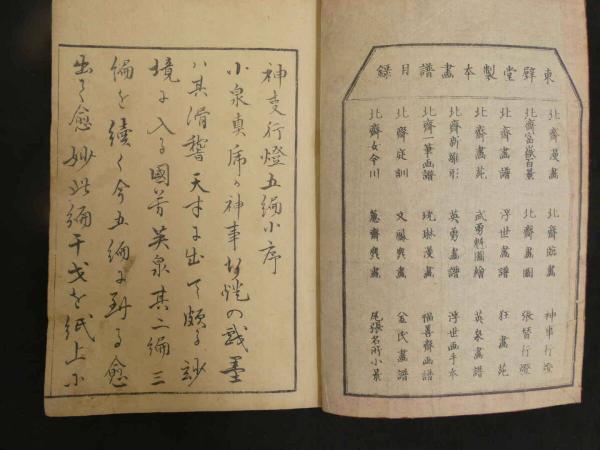 東壁堂製本畫譜目録
北齋漫畫 北齋臨畫 神事行燈
北齋富嶽百景 北齋畫圖 張替行燈
北齋畫譜 浮世畫譜 狂畫苑
北齋畫苑 武勇魁圖繪 英泉畫譜
北齋新雛形 英勇畫譜 浮世画手本
北齋一筆画譜 光琳漫畫 福善齋画譜
北齋庭訓 文鳳麁畫 金氏畫譜
北齋女今川 蕙齋麁畫 尾張名所小景
神事行燈五編小序
小泉真席の神事行燈の戯墨
ハ其滑稽天才に出て頗る妙
境に入る國芳英泉其二編三
編を續く今五編に到る愈
出て愈妙此編干戈を紙上に